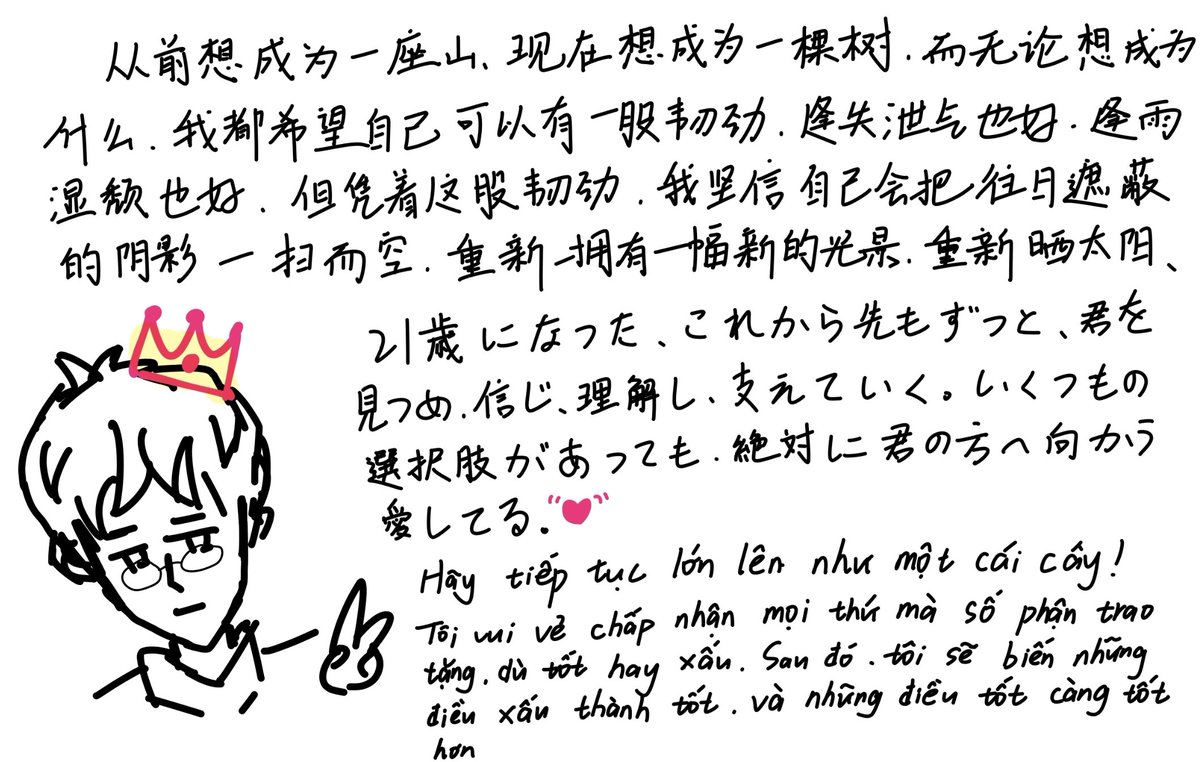 从前想成为一座山、现在想成为一棵树.而无论想成为
什么.我都希望自己可以有一股韧劲.逢失泄气也好.逢雨
湿颓也好.但凭着这股韧劲.我坚信自己会把往日遮蔽
的阴影一扫而空.重新拥有一幅新的光景.重新晒太阳、
21歳になった、これから先もずっと、君を
見つめ.信じ、理解し、支えていく。いくつもの
選択肢があっても.絶対に君の方へ向かう
愛してる.
Hãy tiếp tục lớn lên như một cái cây!
Tôi vui vẻ chấp nhận mọi thứ mà số phận trao
tặng.dù tốt hay xấu. Sau đó.tôi sẽ biến những
điều xấu thành tốt.và những điều tốt càng tốt
hơn